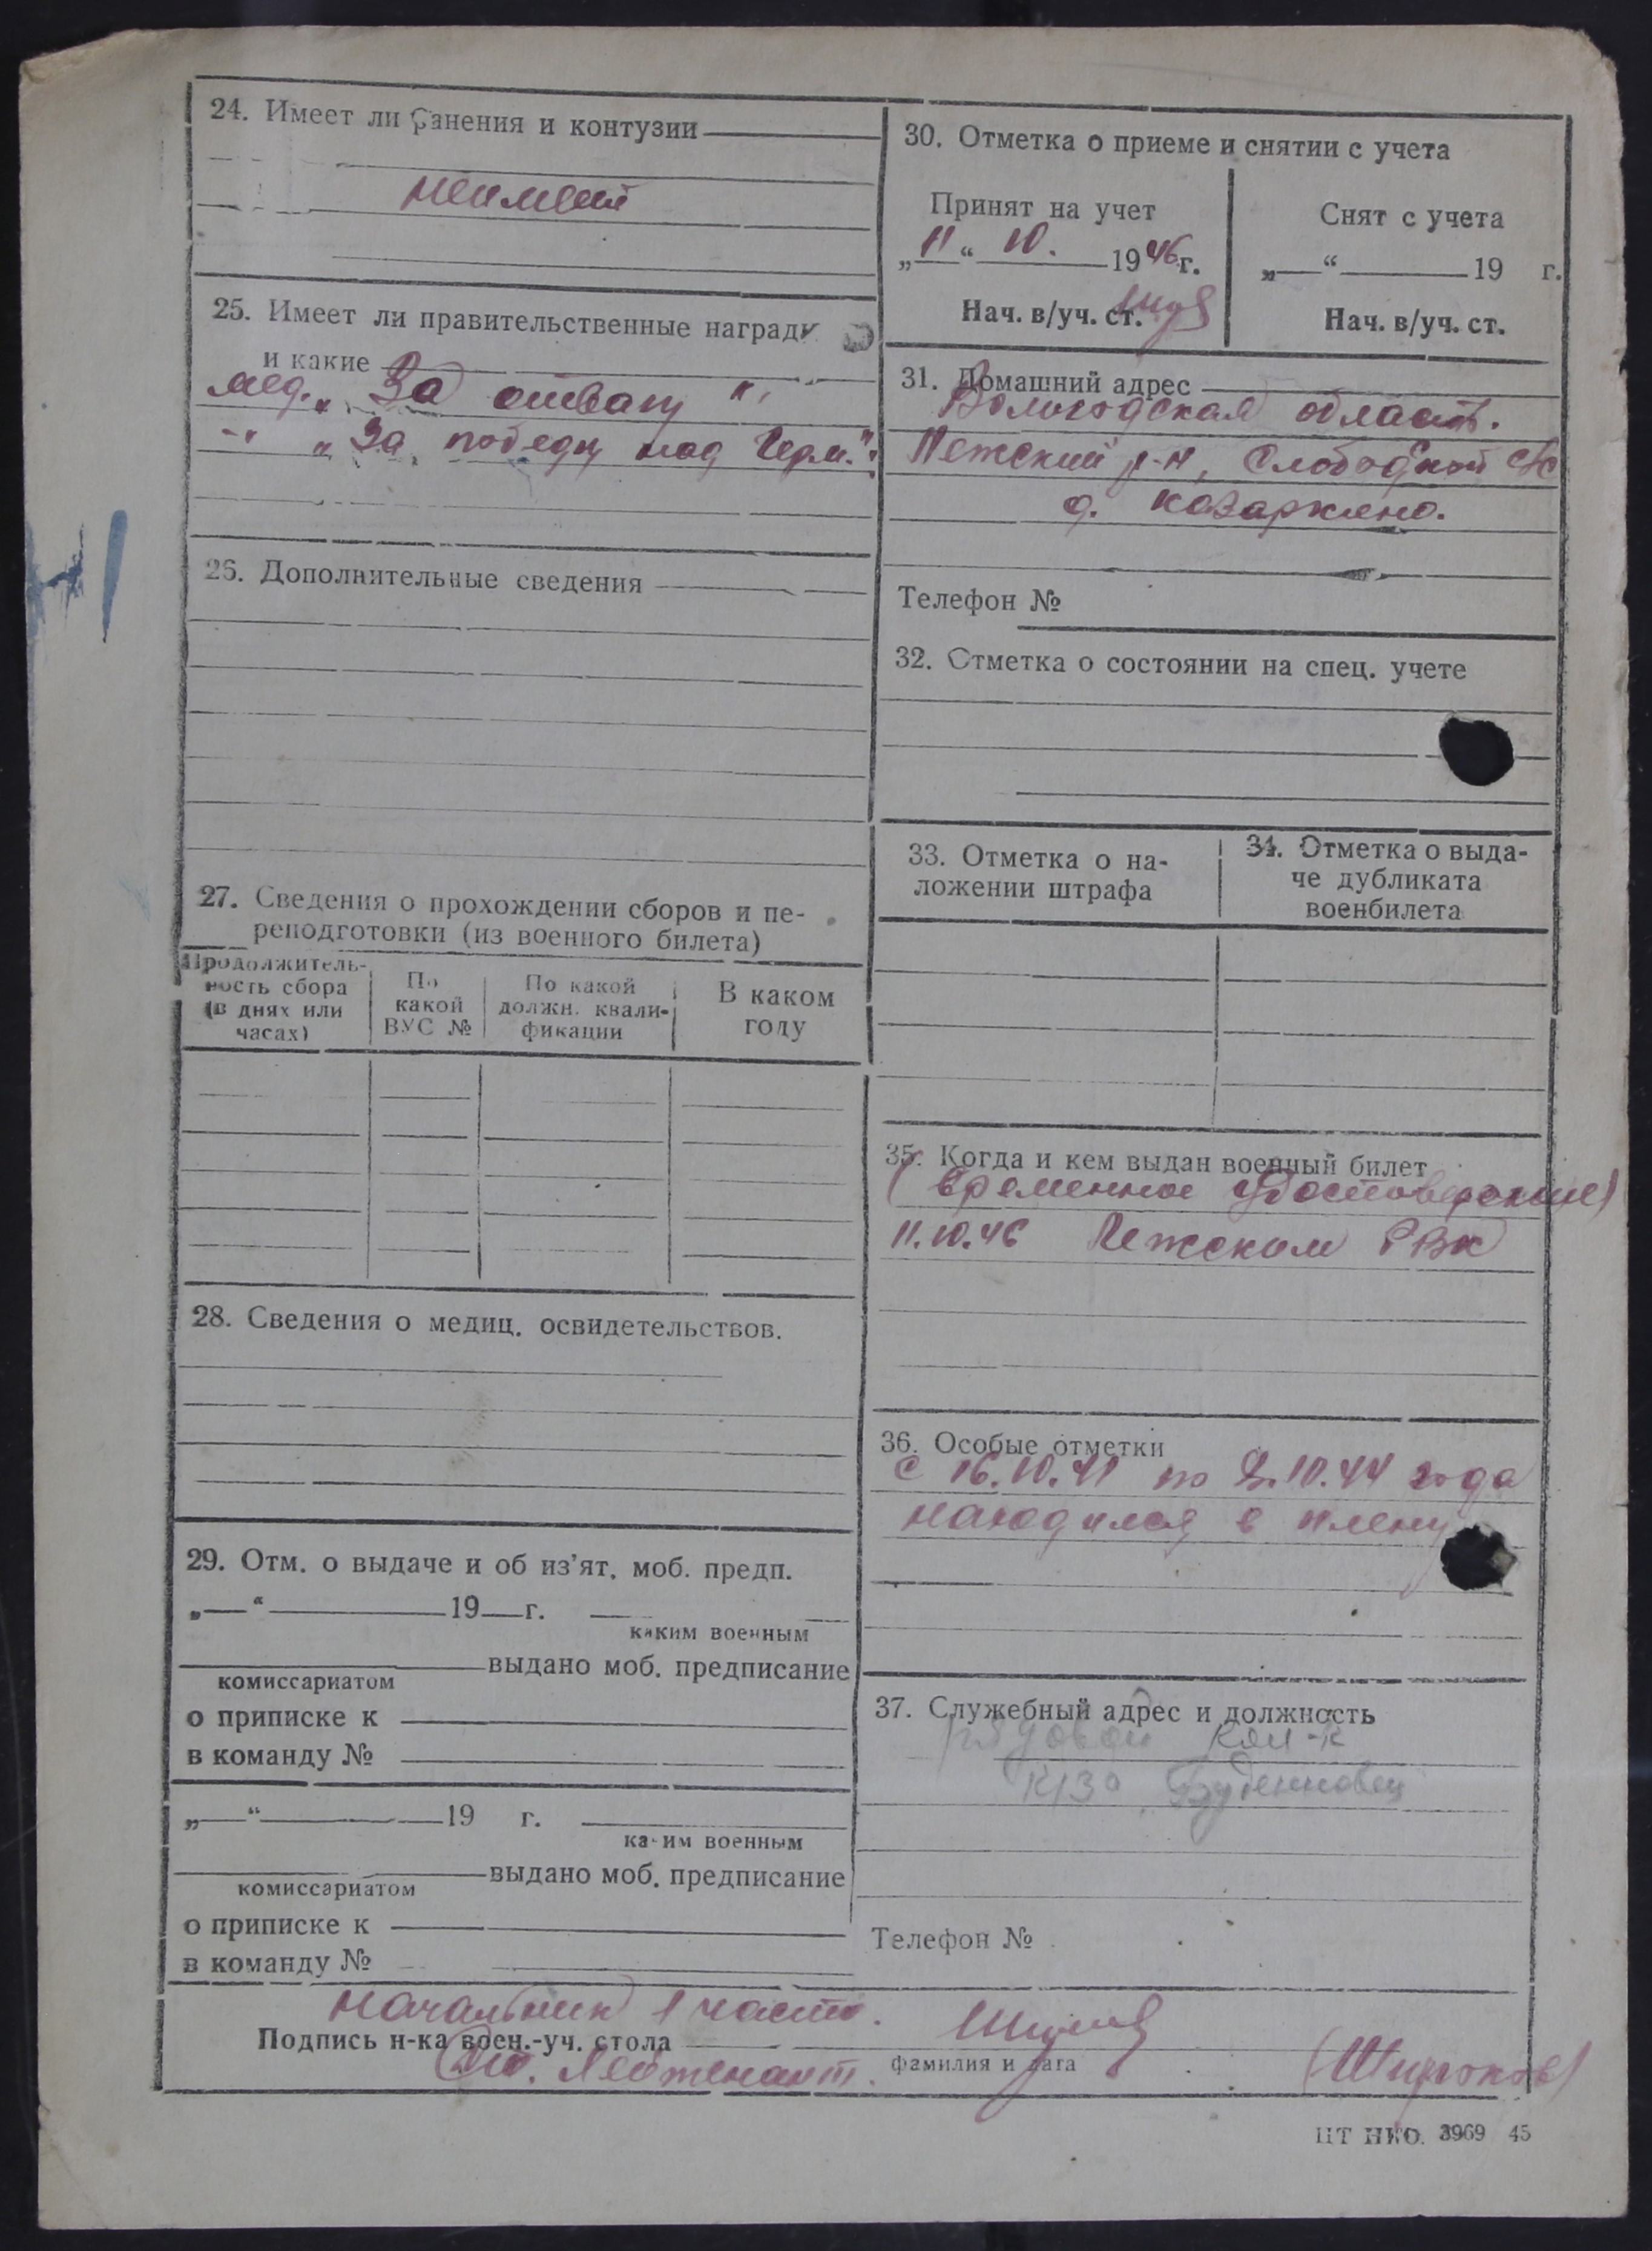 24. Имеет ли ранения и контузии
неимеет
25. Имеет ли правительственные награды
и какие
мед. „За отвагу“,
-"- „За победу над Герм.“.
26. Дополнительные сведения
27. Сведения о прохождении сборов и пе-
реподготовки (из военного билета)
Продолжитель-
ность сбора
(в днях или
часах)
По
какой
ВУС №
По какой
должн. квали-
фикации
В каком
году
28. Сведения о медиц. освидетельствов.
29. Отм. о выдаче и об из’ят. моб. предп.
„ “ 19 г.
каким военным
выдано моб. предписание
комиссариатом
о приписке к
в команду №
„ “ 19 г.
каким военным
выдано моб. предписание
комиссариатом
о приписке к
в команду №
30. Отметка о приеме и снятии с учета
Принят на учет
„11“ 10. 1946 г.
Нач. в/уч. ст.
Снят с учета
„ “ 19 г.
Нач. в/уч. ст.
31. Домашний адрес
Вологодская область.
Пежский р-н, Слободской с/с
д. Казаркино.
Телефон №
32. Отметка о состоянии на спец. учете
33. Отметка о на-
ложении штрафа
34. Отметка о выда-
че дубликата
военбилета
35. Когда и кем выдан военный билет
(временное удостоверение)
11.10.46 Пежским РВК
36. Особые отметки
с 16.10.41 по 2.10.44 года
находился в плену
37. Служебный адрес и должность
рядовой кол-к
к/з Буденновец
Телефон №
Начальник 1 части.
Подпись н-ка воен.-уч. стола
Ст. Лейтенант.
фамилия и дата
(Широков)
ЦТ НКО. 3969 45